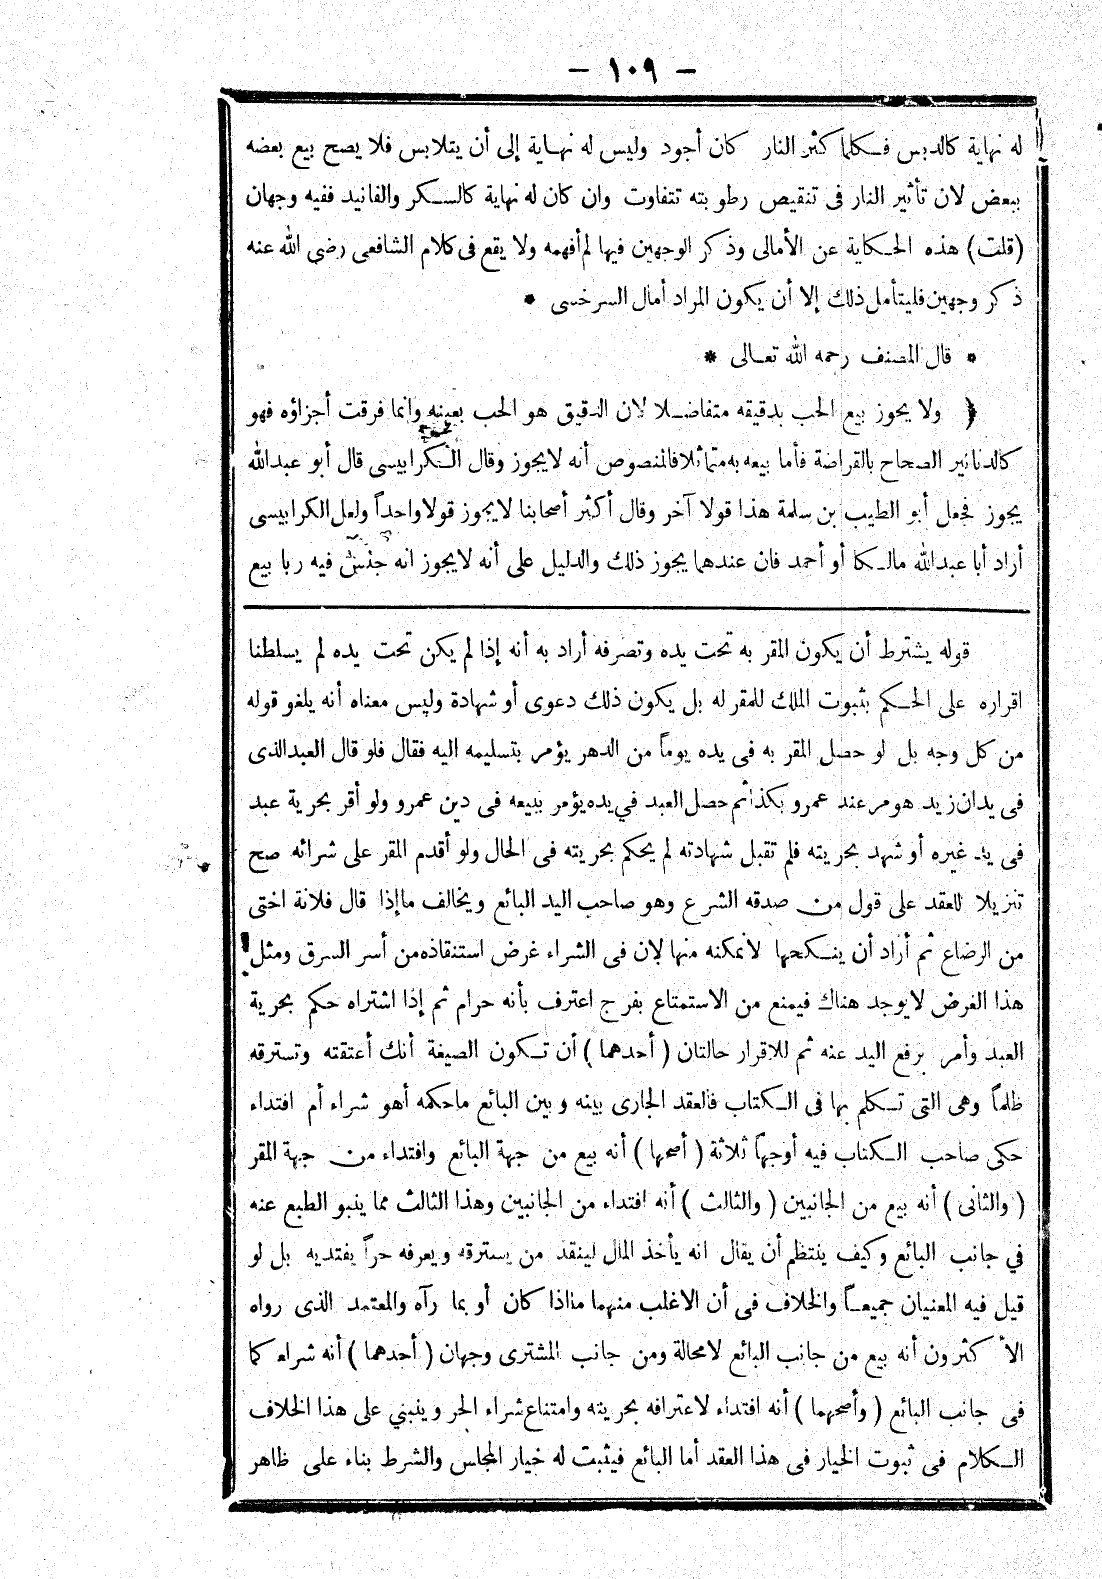 - ١٠٩ -
له نهاية كالدبس فكلما كثر النار كان أجود وليس له نهاية إلى أن يتلابس فلا يصح بيع بعضه
ببعض لان تأثير النار فى تنقيص رطوبته تتفاوت وان كان له نهاية كالسكر والفانيد ففيه وجهان
(قلت) هذه الحكاية عن الأمالى وذكر الوجهين فيها لم أفهمه ولا يقع فى كلام الشافعى رضى الله عنه
ذكر وجهين فليتأمل ذلك إلا أن يكون المراد أمال السرخسى *
* قال المصنف رحمه الله تعالى *
﴿ ولا يجوز بيع الحب بدقيقه متفاضلا لان الدقيق هو الحب بعينه وانما فرقت أجزاؤه فهو
كالدنانير الصحاح بالقراضة فأما بيعه به متماثلا فالمنصوص أنه لايجوز وقال الكرابيسى قال أبو عبدالله
يجوز فجعل أبو الطيب بن سلمة هذا قولا آخر وقال أكثر أصحابنا لايجوز قولا واحداً ولعل الكرابيسى
أراد أبا عبدالله مالكا أو أحمد فان عندهما يجوز ذلك والدليل على أنه لايجوز انه جنس فيه ربا بيع
قوله يشترط أن يكون المقر به تحت يده وتصرفه أراد به أنه إذا لم يكن تحت يده لم يسلطنا
اقراره على الحكم بثبوت الملك للمقر له بل يكون ذلك دعوى أو شهادة وليس معناه أنه يلغو قوله
من كل وجه بل لو حصل المقر به فى يده يوماً من الدهر يؤمر بتسليمه اليه فقال فلو قال العبد الذى
فى يدان زيد هو مر عند عمرو بكذا ثم حصل العبد في يده يؤمر ببيعه فى دين عمرو ولو أقر بحرية عبد
فى يد غيره أو شهد بحريته فلم تقبل شهادته لم يحكم بحريته فى الحال ولو أقدم المقر على شرائه صح
تنزيلا للعقد على قول من صدقه الشرع وهو صاحب اليد البائع ويخالف ماإذا قال فلانة اختى
من الرضاع ثم أراد أن ينكحها لانمكنه منها لان فى الشراء غرض استنقاذه من أسر السرق ومثل
هذا الغرض لايوجد هناك فيمنع من الاستمتاع بفرج اعترف بأنه حرام ثم إذا اشتراه حكم بحرية
العبد وأمر برفع اليد عنه ثم للاقرار حالتان ( أحدهما ) أن تكون الصيغة أنك أعتقته وتسترقه
ظلماً وهى التى تكلم بها فى الكتاب فالعقد الجارى بينه وبين البائع ماحكمه أهو شراء أم افتداء
حكى صاحب الكتاب فيه أوجهاً ثلاثة ( أصحها ) أنه بيع من جهة البائع وافتداء من جهة المقر
( والثانى ) أنه بيع من الجانبين ( والثالث ) أنه افتداء من الجانبين وهذا الثالث مما ينبو الطبع عنه
في جانب البائع وكيف ينتظم أن يقال انه يأخذ المال لينقذ من يسترقه ويعرفه حراً يفتديه بل لو
قيل فيه المعنيان جميعاً والخلاف فى أن الاغلب منهما ماذا كان أو بما رآه والمعتمد الذى رواه
الأكثرون أنه بيع من جانب البائع لامحالة ومن جانب المشترى وجهان ( أحدهما ) أنه شراء كما
فى جانب البائع ( وأصحهما ) أنه افتداء لاعترافه بحريته وامتناع شراء الحر وينبني على هذا الخلاف
الكلام فى ثبوت الخيار فى هذا العقد أما البائع فيثبت له خيار المجاس والشرط بناء على ظاهر